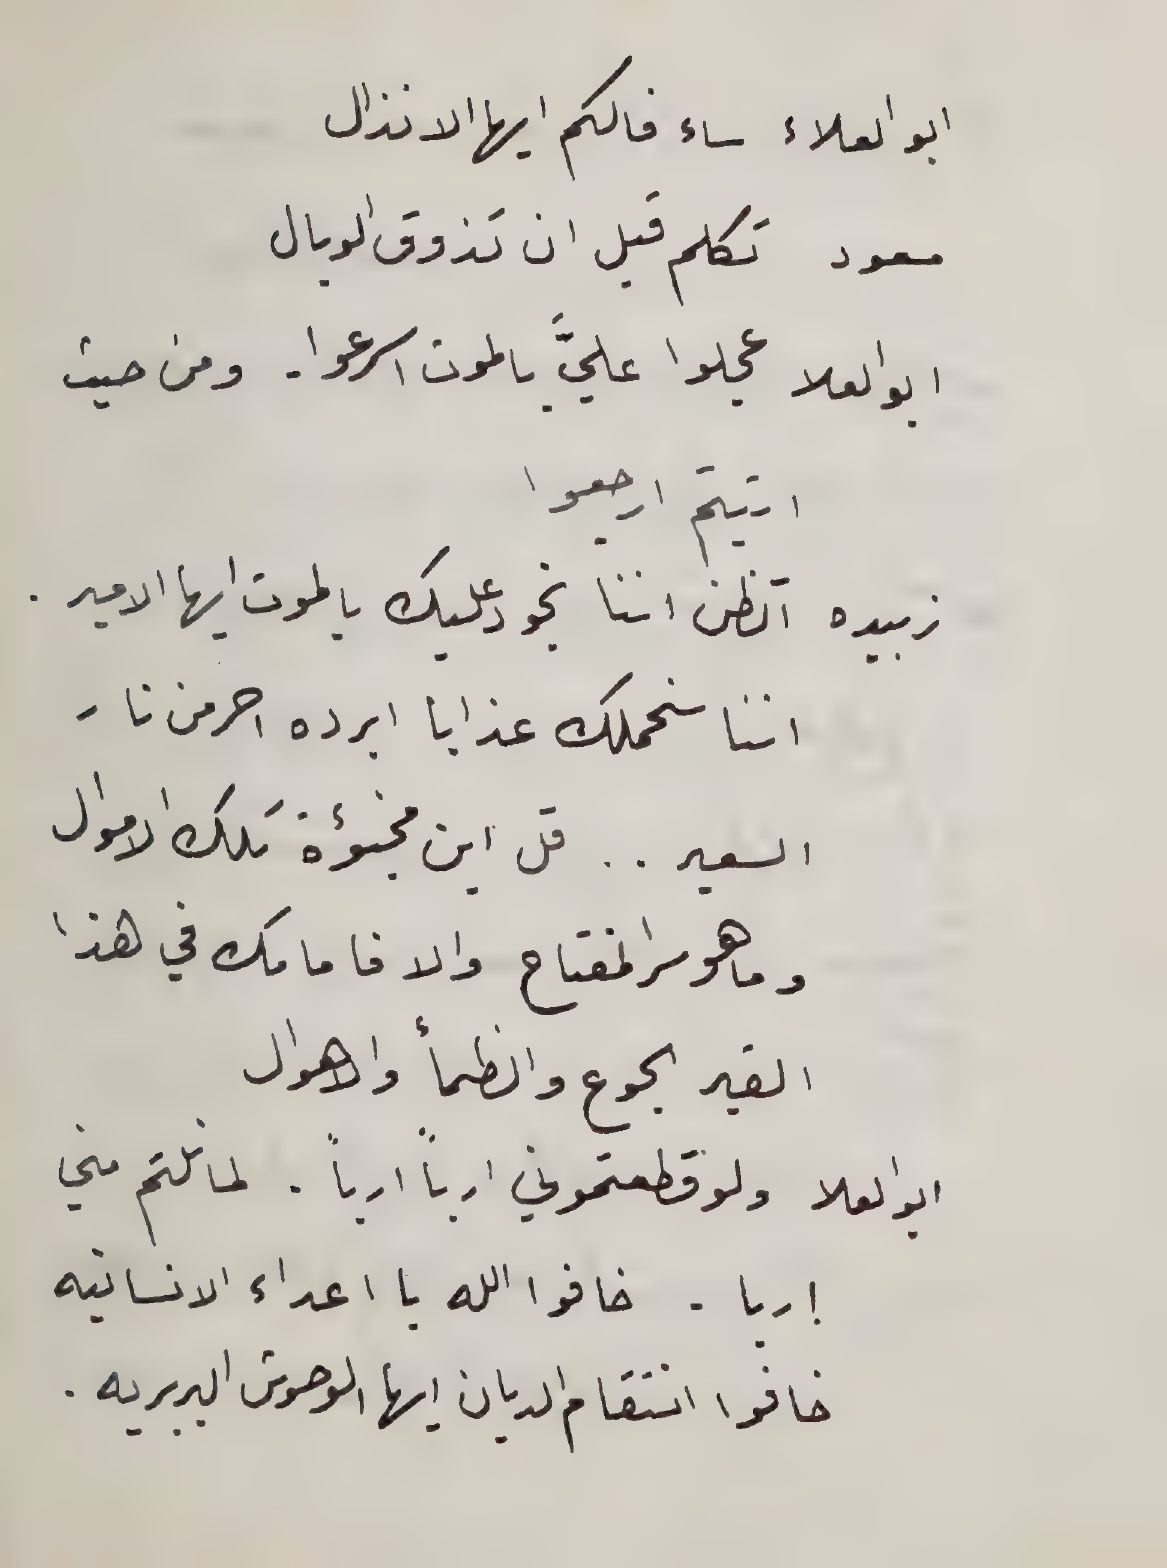 ابو العلاء ساء فالكم ايها الانذال
مسعود تكلم قبل ان تذوق الوبال
ابو العلا عجلوا عليَّ بالموت اسرعوا . ومن حيث
اتيتم ارجعوا
زبيده آتظن اننا نجود عليك بالموت ايها الامير .
اننا سنحملك عذابا ابرده احر من نار
السعير . . قل اين مخبؤة تلك الاموال
وما هو سر المفتاح والا فامامك في هذا
القبر الجوع والظمأ والاهوال
ابو العلا ولو قطعتموني ارباً ارباً . لما نلتم مني
إربا . خافوا الله يا اعداء الانسانيه
خافوا انتقام الديان ايها الوحوش البربريه .